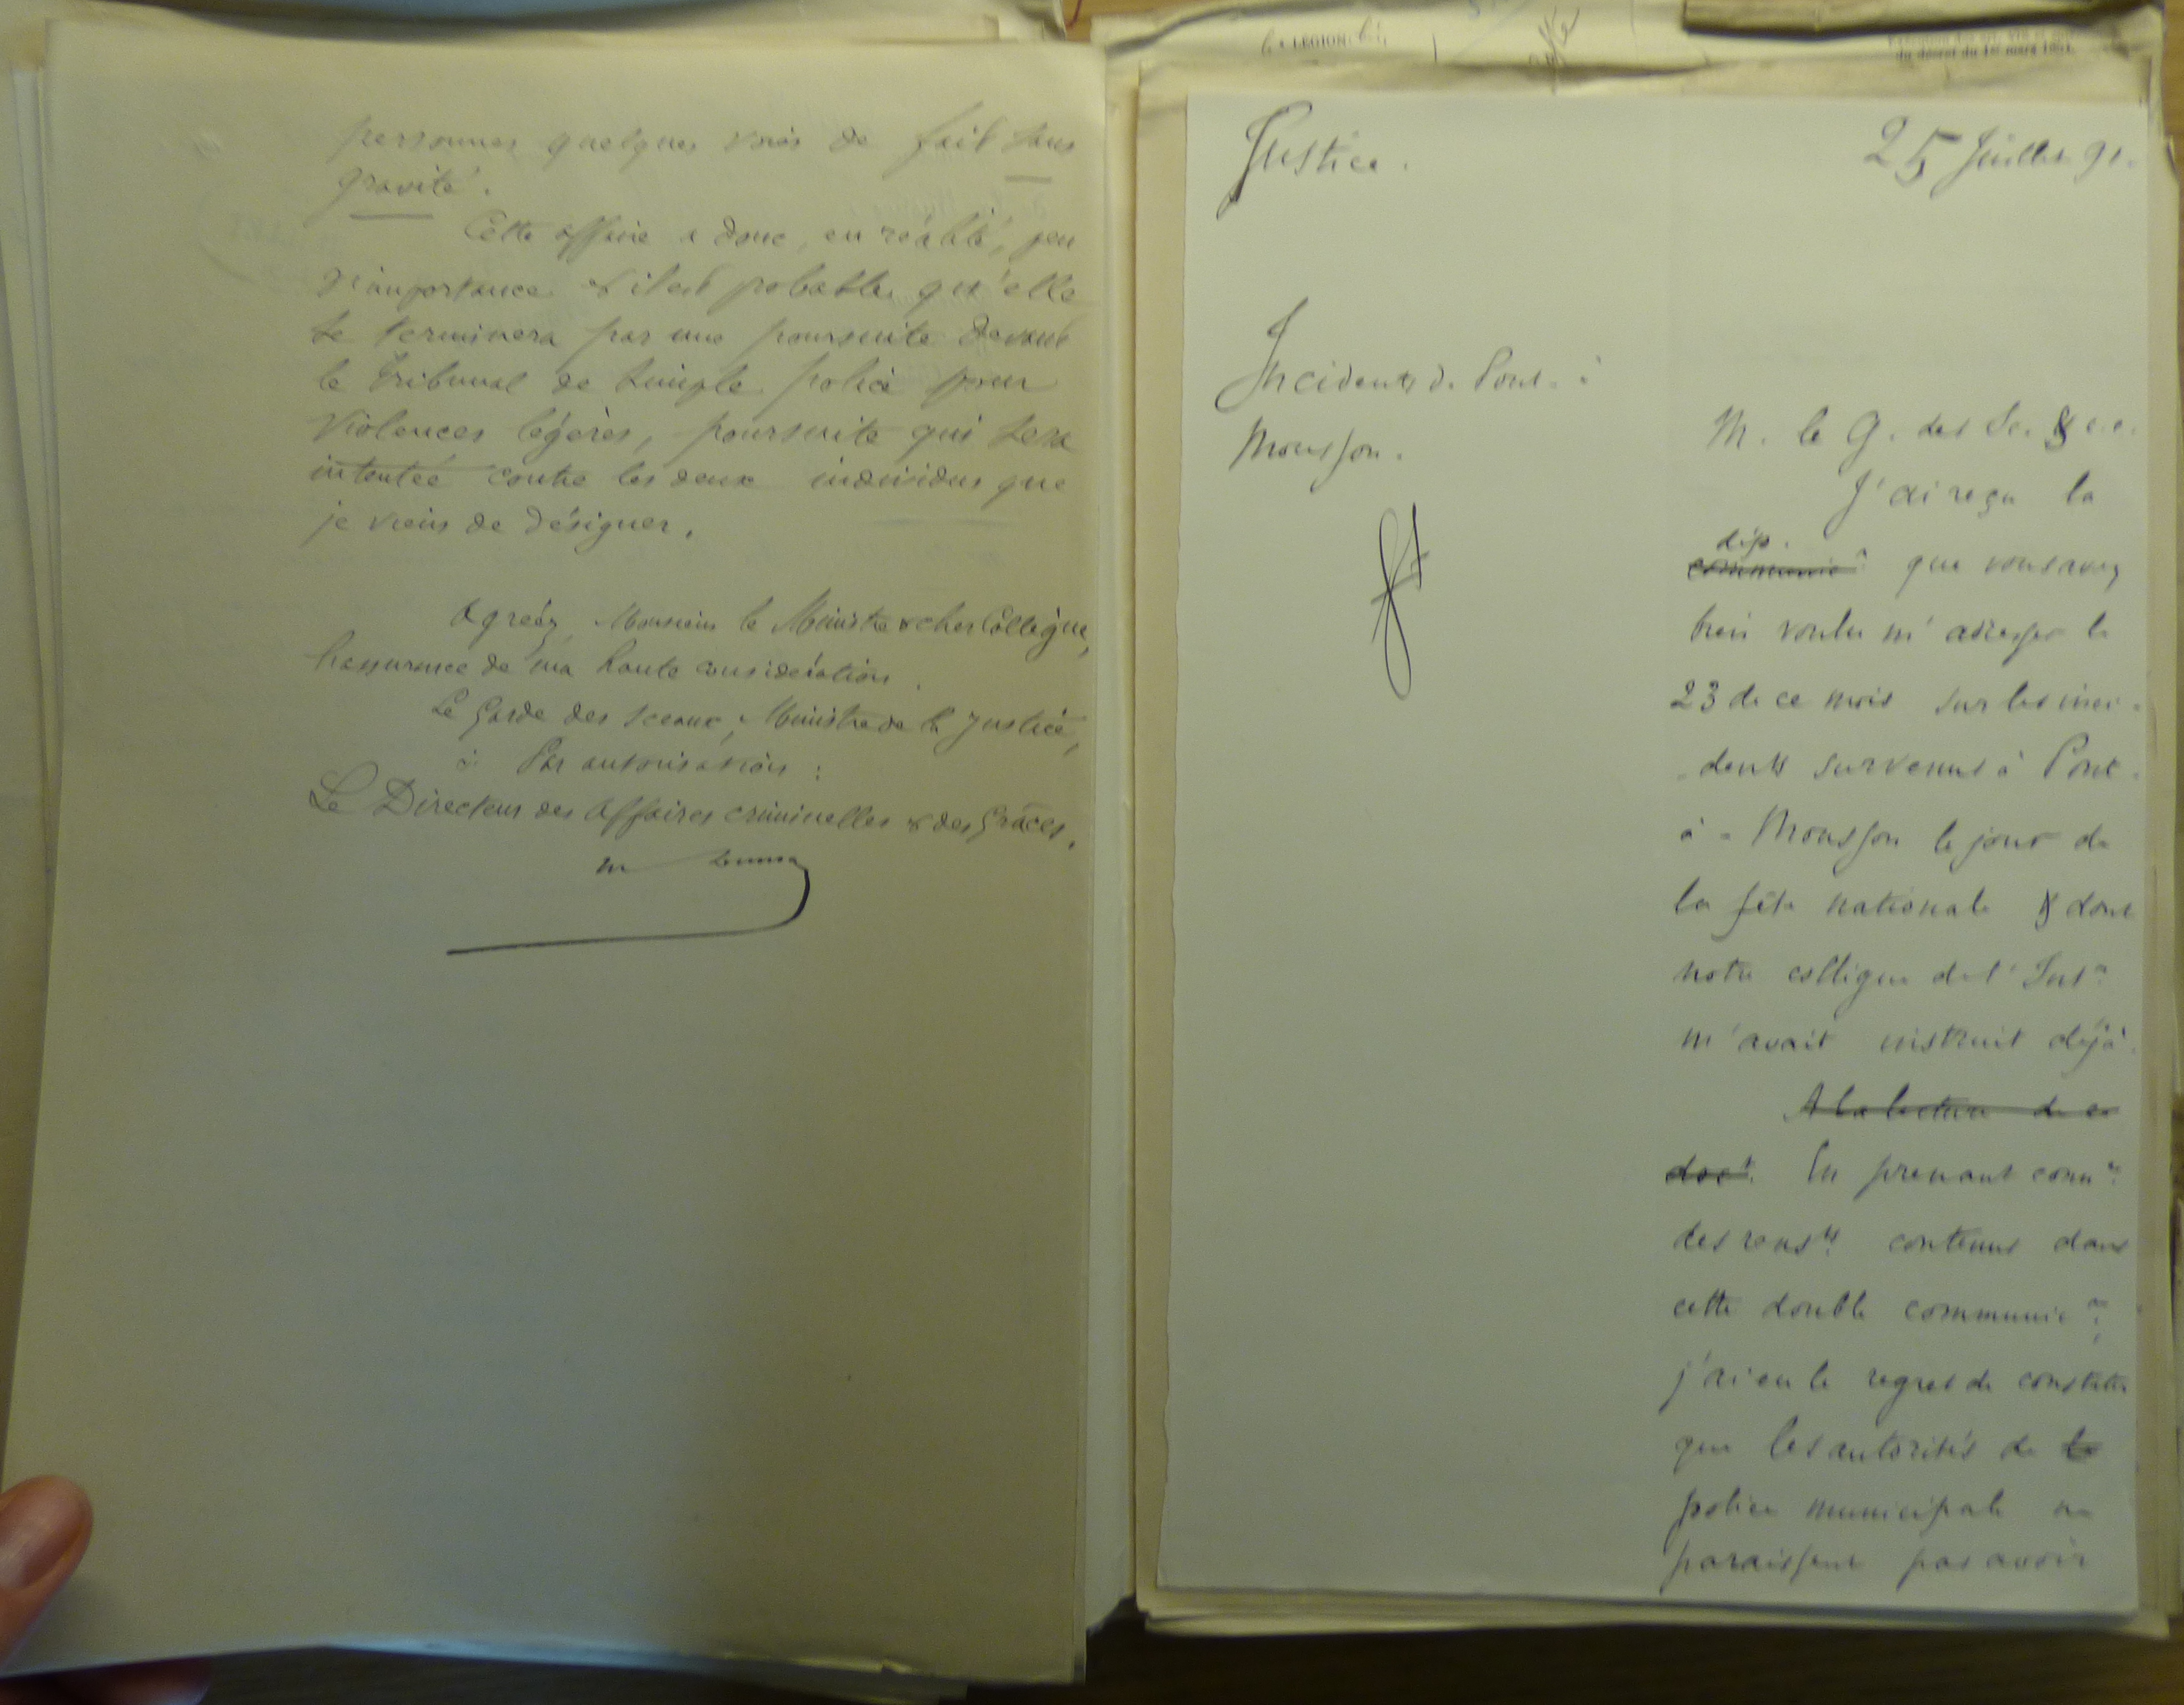 personnes quelques voies de fait sans
gravité.
Cette affaire a donc, en réalité, peu
d'importance & il est probable qu'elle
se terminera par une poursuite devant
le tribunal de simple police pour
violences légères, poursuite qui sera
intentée contre les deux individus que
je viens de désigner.
Agréez, Monsieur le Ministre & cher Collègue,
l'assurance de ma haute considération.
Le Garde des Sceaux, Ministre de la Justice,
Par autorisation :
Le Directeur des Affaires criminelles & des Grâces.
LEGION
du décret du 1er mars 1854.
Justice.
25 Juillet 91.
Incidents de Pont-à
Mousson.
M. le G. des Sc. &
J'ai reçu la
dép.
communic^on que vous avez
bien voulu m'adresser le
23 de ce mois sur les inci-
dents survenus à Pont-
à-Mousson le jour de
la fête nationale & dont
notre collègue de l'Int^r
m'avait instruit déjà.
A la lecture de ce
doc^t. En prenant conn^ce
des rens^ts contenus dans
cette double communic^on,
j'ai eu le regret de constater
que les autorités de la
police municipale ne
paraissent pas avoir